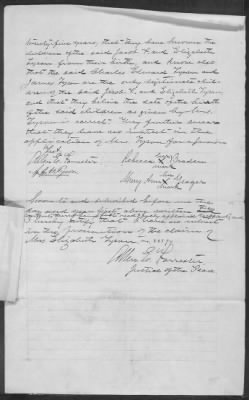 twenty five years, that they have known the
children of the said Jacob F. and Elizabeth
Tyson from their birth, and know also
that the said Charles Edward Tyson and
James Tyson are the only legitimate child-
ren of the said Jacob F. and Elizabeth Tyson,
and that they believe the date of the birth
of the said children as given by Mrs.
Tyson is correct. They further swear
that they have no interest in the
application of Mrs Tyson for a pension
Attest
Allen E. Forrester
Rebecca her X mark Braden
Mary Ann her X mark Yeager
Sworn to and subscribed before me the
day and year
I hereby certify that I have no interest
in the prosecution of the claim of
Mrs Elizabeth Tyson
Allen E. Forrester
Justice of the Peace